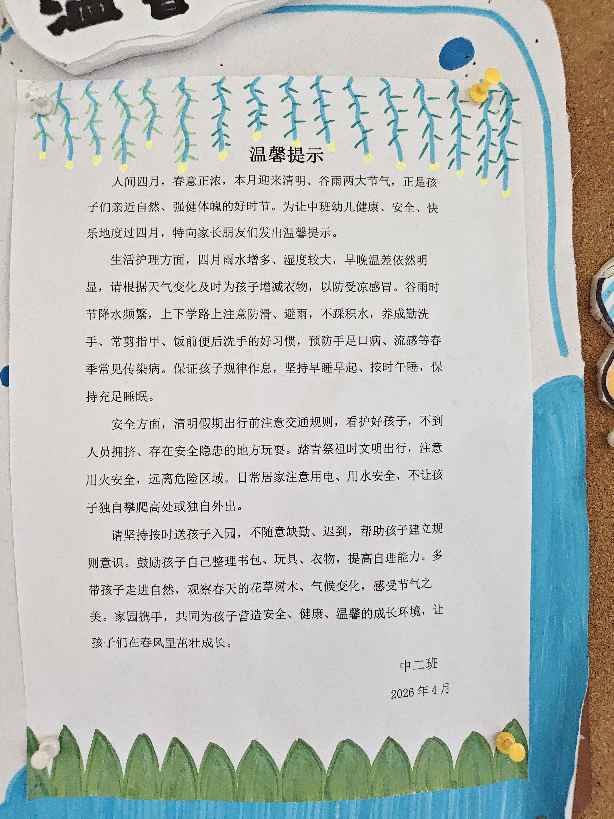 温馨提示
人间四月，春意正浓，本月迎来清明、谷雨两大节气，正是孩
子们亲近自然、强健体魄的好时节。为让中班幼儿健康、安全、快
乐地度过四月，特向家长朋友们发出温馨提示。
生活护理方面，四月雨水增多、湿度较大，早晚温差依然明
显，请根据天气变化及时为孩子增减衣物，以防受凉感冒。谷雨时
节降水频繁，上下学路上注意防滑、避雨，不踩积水，养成勤洗
手、常剪指甲、饭前便后洗手的好习惯，预防手足口病、流感等春
季常见传染病。保证孩子规律作息，坚持早睡早起、按时午睡，保
持充足睡眠。
安全方面，清明假期出行前注意交通规则，看护好孩子，不到
人员拥挤、存在安全隐患的地方玩耍。踏青祭祖时文明出行，注意
用火安全，远离危险区域。日常居家注意用电、用水安全，不让孩
子独自攀爬高处或独自外出。
请坚持按时送孩子入园，不随意缺勤、迟到，帮助孩子建立规
则意识。鼓励孩子自己整理书包、玩具、衣物，提高自理能力。多
带孩子走进自然，观察春天的花草树木、气候变化，感受节气之
美。家园携手，共同为孩子营造安全、健康、温馨的成长环境，让
孩子们在春风里茁壮成长。
中二班
2026年4月